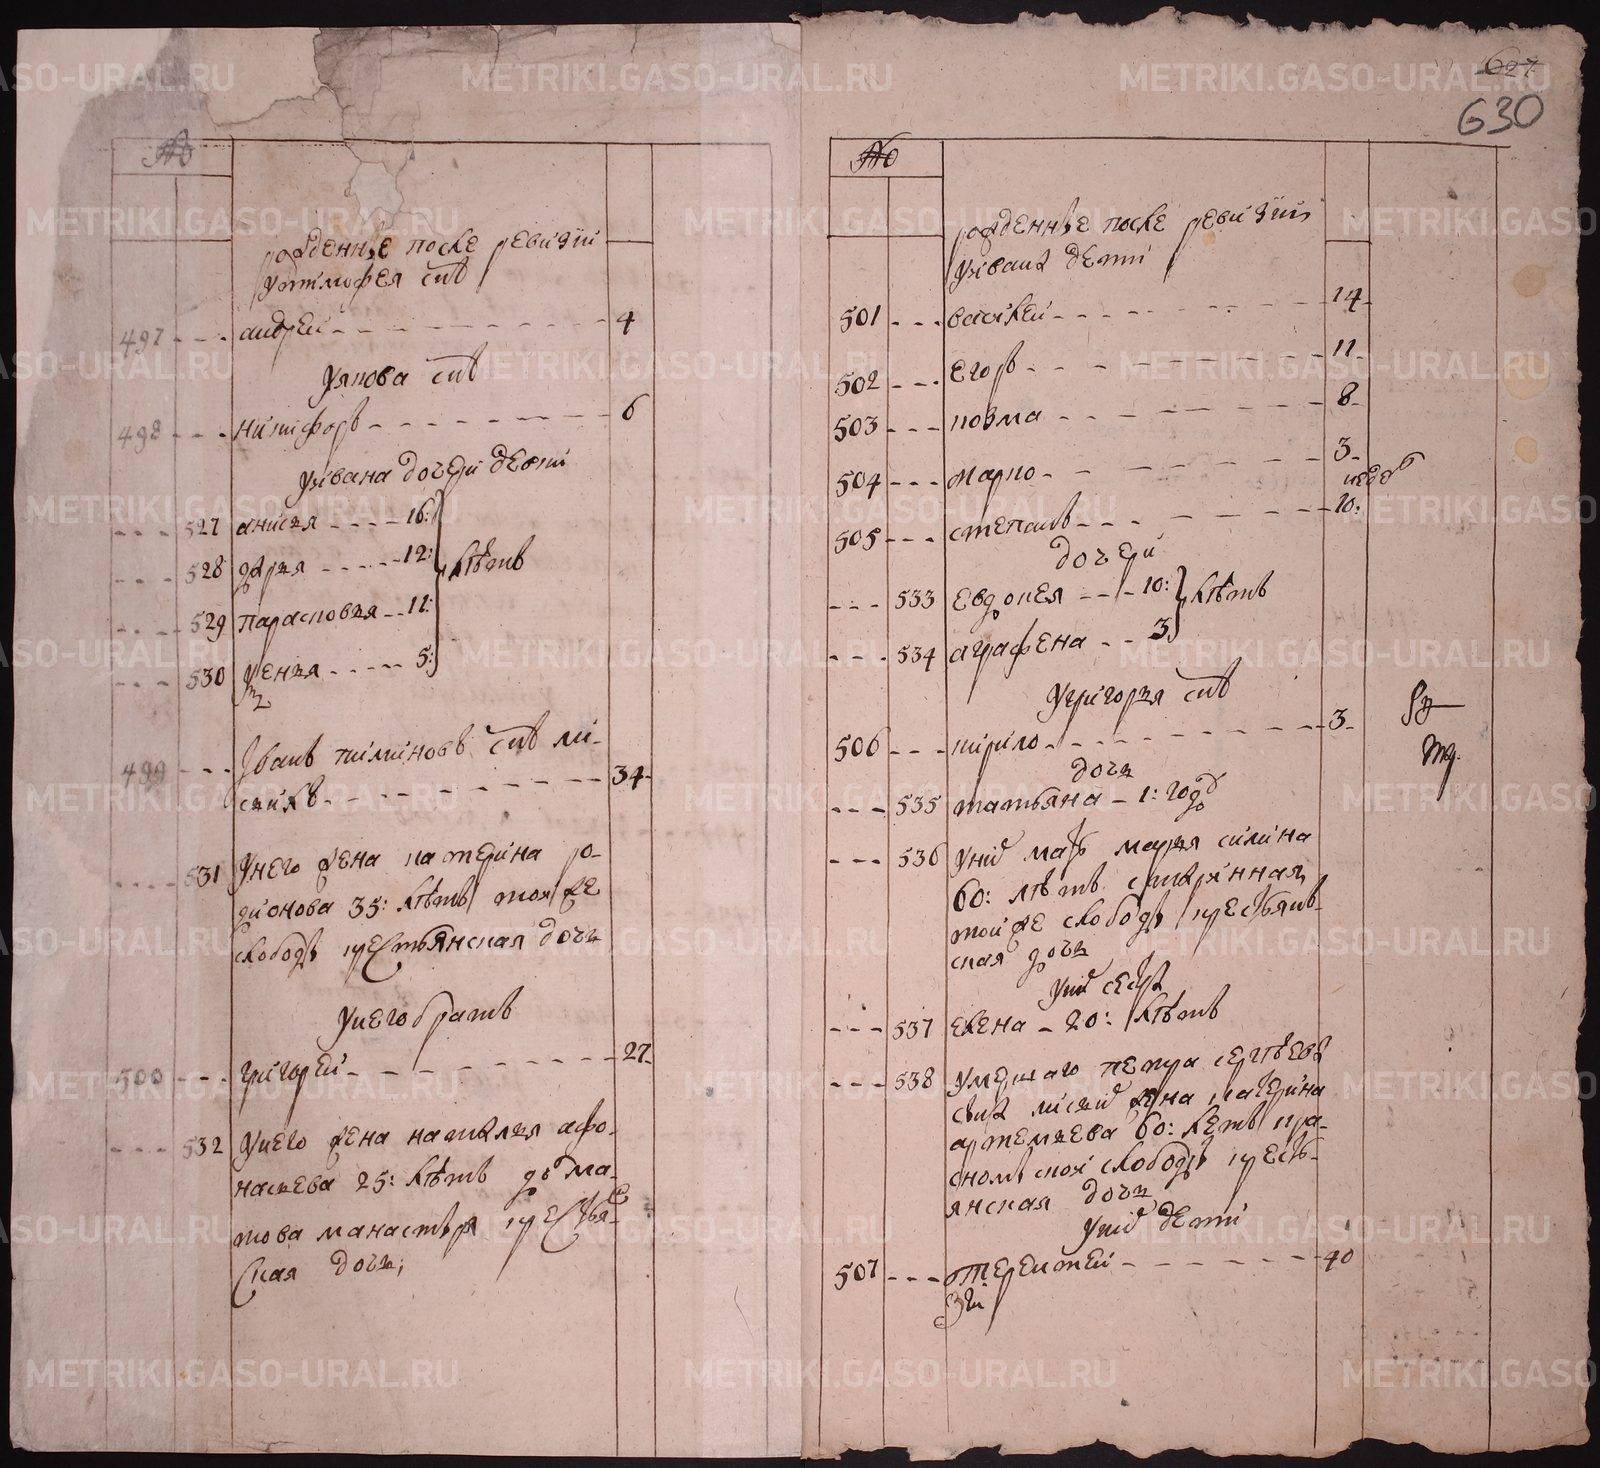 №
рожденные после ревизии
у тимофея сынъ
497 андрей 4
у якова сынъ
498 никифоръ 6
у ивана дочери дети
527 анисья 16:
528 дарья 12: летъ
529 парасковья 11:
530 ксенья 5:
499 Иванъ тиминовъ сынъ ли-
сихъ 34
531 у него жена катерина ро-
дионова 35: летъ тоя же
слободы крестьянская дочь
у него братъ
500 григорей 27
532 у него жена наталья афо-
насьева 25: летъ далма-
това манастыря крестья-
ская дочь;
627
630
№
рожденные после ревизии
у ивана дети
501 василей 14
502 егоръ 11
503 козма 8
504 марко 3
505 степанъ 10:
дочери
533 евдокея 10: летъ
534 аграфена 3
у григорья сынъ
506 кирило 3
дочь
535 татьяна 1: годъ
536 у них мать марья силина
60: летъ старинная
той же слободы крестьян-
ская дочь
у них сестра
537 елена 20: летъ
538 умершаго петра сергеева
сына лисих жена катерина
артемьева 60: летъ кра-
сномыской слободы кресть-
янская дочь
у них дети
507 терентей 40
METRIKI.GASO-URAL.RU